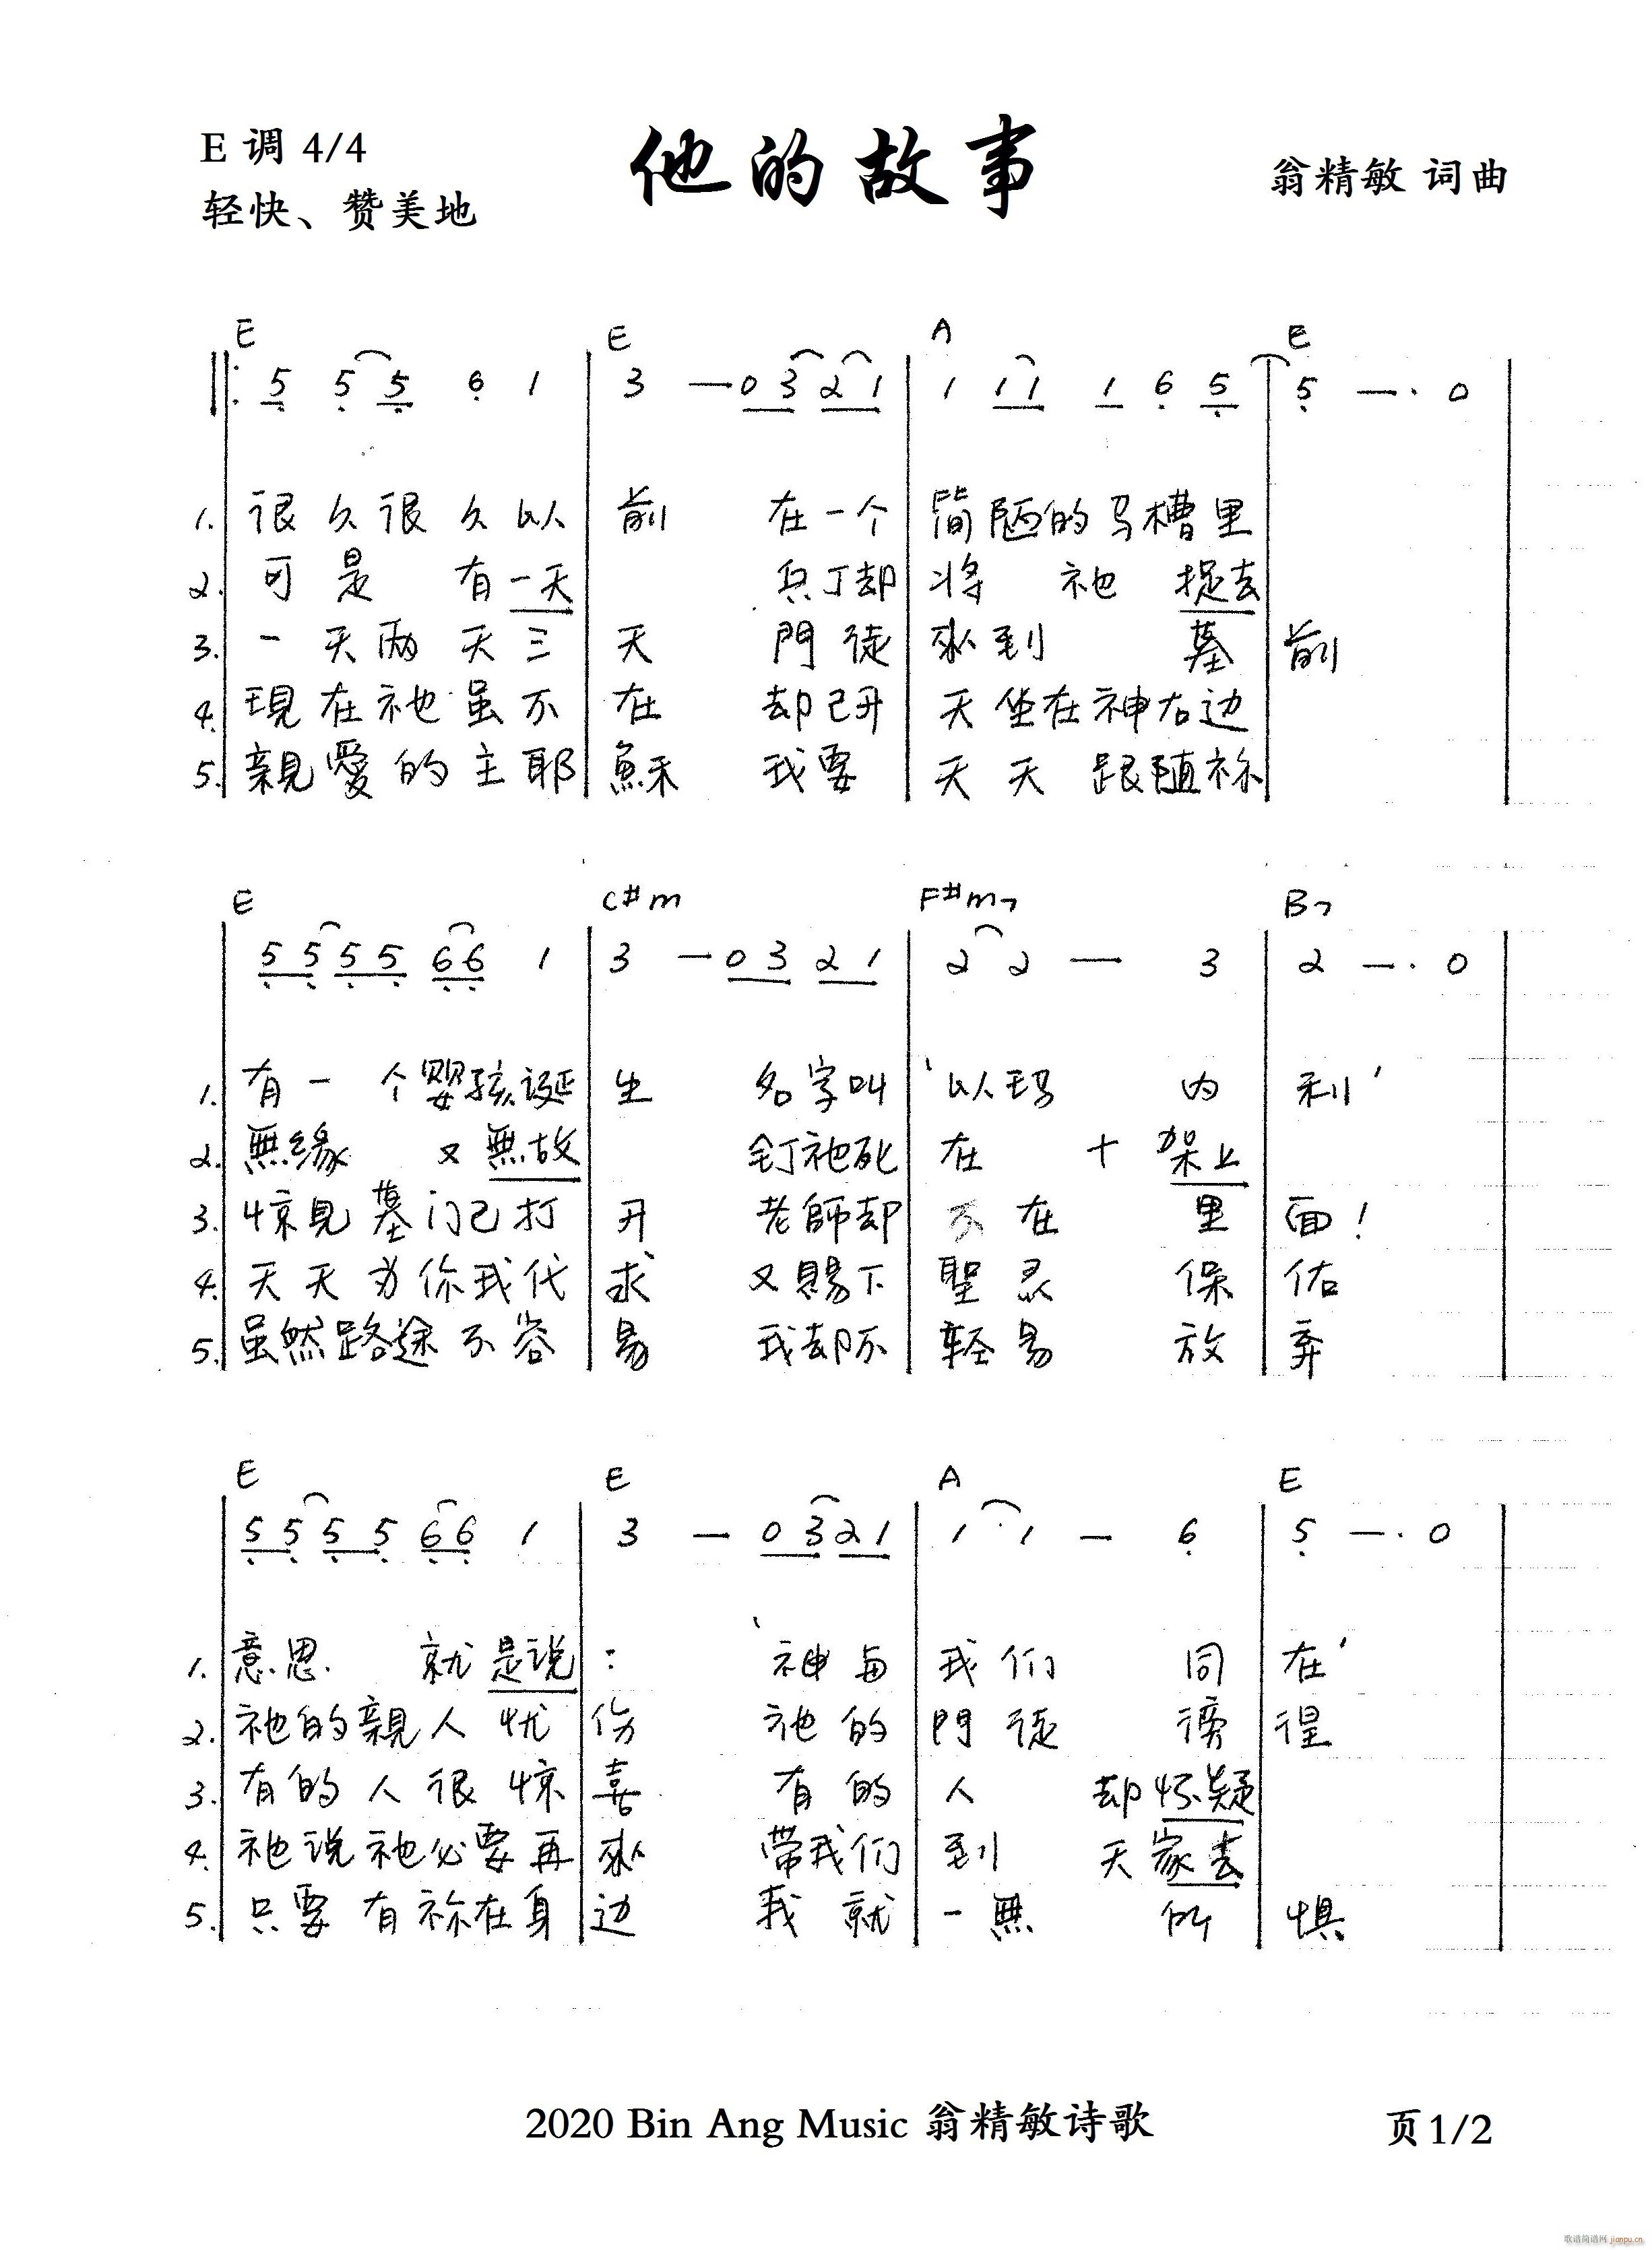 E 调 4/4
他的故事
翁精敏 词曲
轻快、赞美地
E E A E
5 5 5 6 1 3 — 0 3 2 1 1 1 1 1 6 5 5 — · 0
1. 很久很久以 前 在一个 简陋的马槽里
2. 可是 有一天 兵丁却 将 祂 捉去
3. 一天两天三 天 門徒 來到 墓 前
4. 現在祂虽不 在 却已升 天坐在神右边
5. 親愛的主耶 穌 我要 天天跟随祢
E C#m F#m7 B7
5 5 5 5 6 6 1 3 — 0 3 2 1 2 2 — 3 2 — · 0
1. 有一个婴孩诞 生 名字叫 '以玛 内 利'
2. 無缘 又無故 钉祂死 在 十架上
3. 惊見墓门已打 开 老師却 不在 里 面!
4. 天天为你我代 求 又賜下 聖灵 保 佑
5. 虽然路途不容 易 我却不 轻易 放 弃
E E A E
5 5 5 5 6 6 1 3 — 0 3 2 1 1 · 1 — 6 5 — · 0
1. 意思. 就是说 : '神与 我们 同 在'
2. 祂的親人忧 伤 祂的 門徒 徬 徨
3. 有的人很惊 喜 有的 人 却怀疑
4. 祂说祂必要再 來 带我们 到 天家去
5. 只要有祢在身 边 我就 一無 所 惧
2020 Bin Ang Music 翁精敏诗歌
页 1/2
歌谱简谱网 jianpu.cn